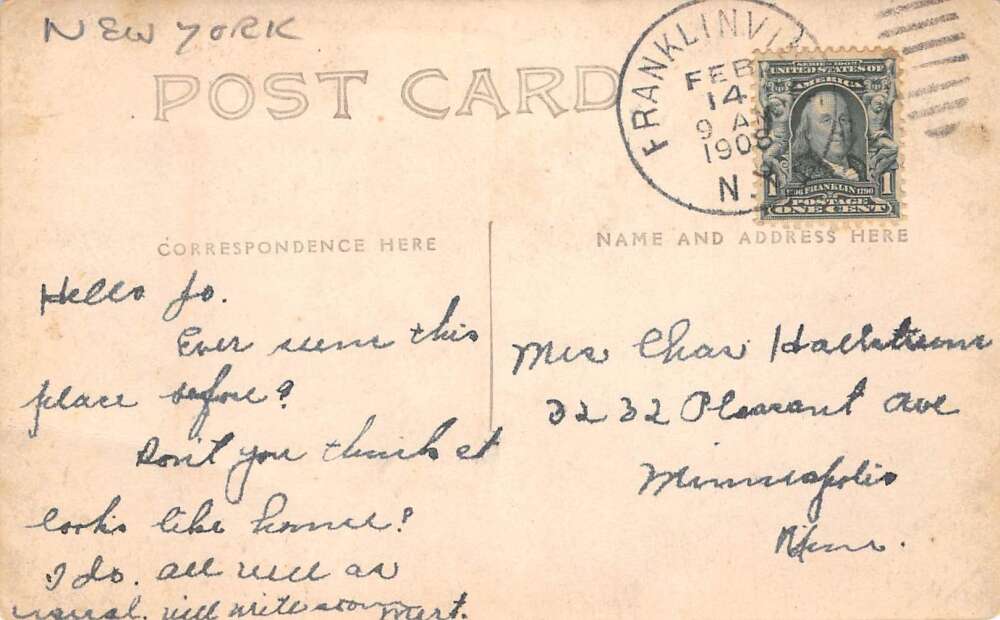 NEW YORK
POST CARD
FRANKLINVI
FEB
14
9 AM
1908
N.Y.
SERIES 1902
UNITED STATES OF
AMERICA
1 FRANKLIN 1790 1
POSTAGE
ONE CENT
CORRESPONDENCE HERE
NAME AND ADDRESS HERE
Hello Jo.
Ever seen this
place before?
Don't you think it
looks like home?
I do. all well as
usual. will write soon Mert.
Mrs Chas
3232 Pleasant Ave
Minneapolis
Minn.